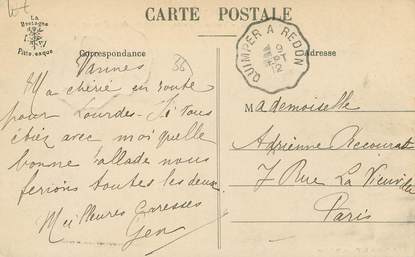 CARTE POSTALE
La
Bretagne
Pittoresque
Correspondance
Adresse
QUIMPER A REDON
Vannes
36
Ma chérie en route
pour Lourdes. Si vous
étiez avec moi quelle
bonne ballade nous
ferions toutes les deux.
Meilleures Caresses
Gen
Mademoiselle
Adrienne
7 Rue La
Paris